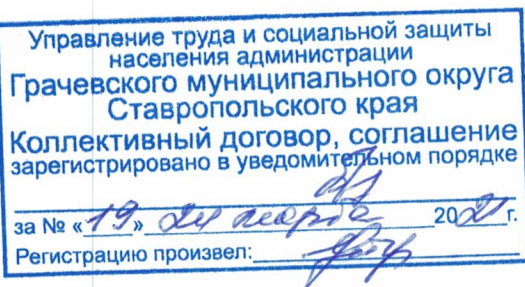 Управление труда и социальной защиты
населения администрации
Грачевского муниципального округа
Ставропольского края
Коллективный договор, соглашение
зарегистрировано в уведомительном порядке
за № «19» 24 марта 2021г.
Регистрацию произвел: